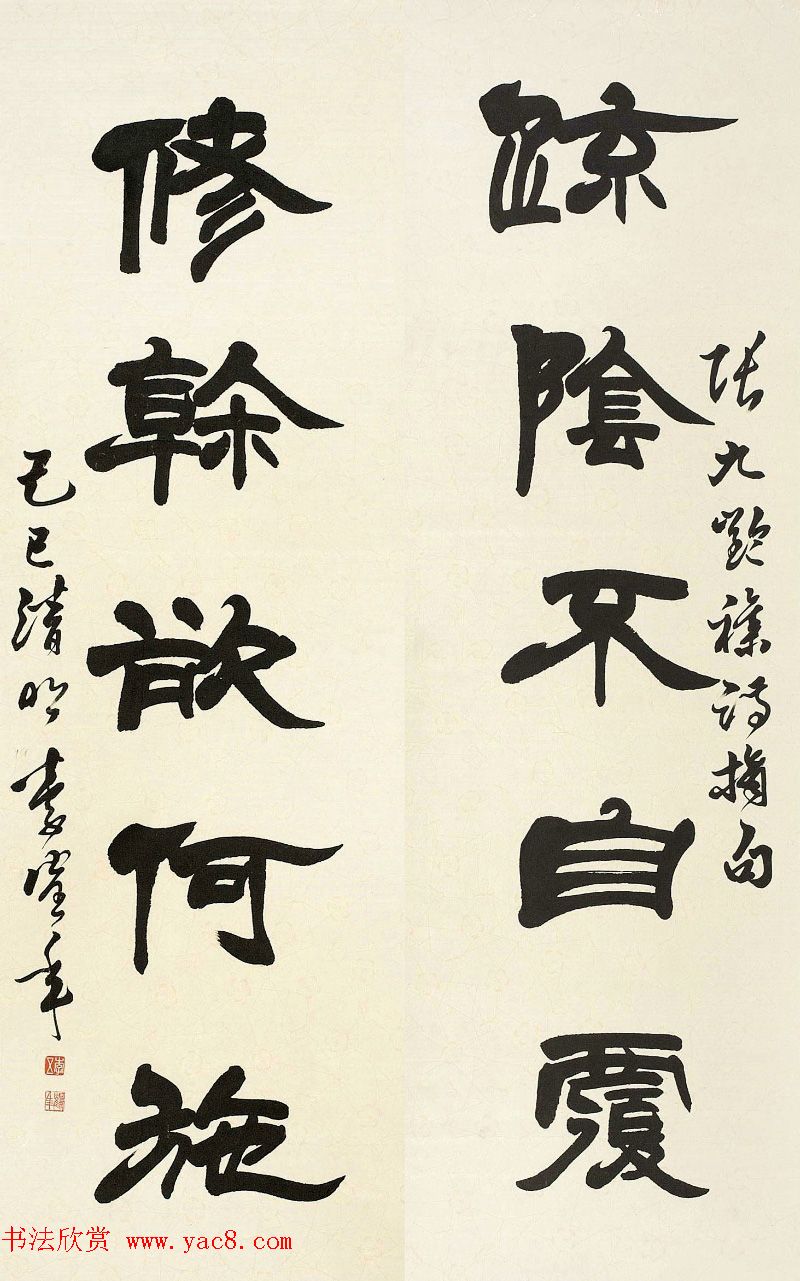 張九齡雜詩摘句
疏陰不自覆
修榦欲何施
己巳清明 李鶴年
书法欣赏 www.yac8.com